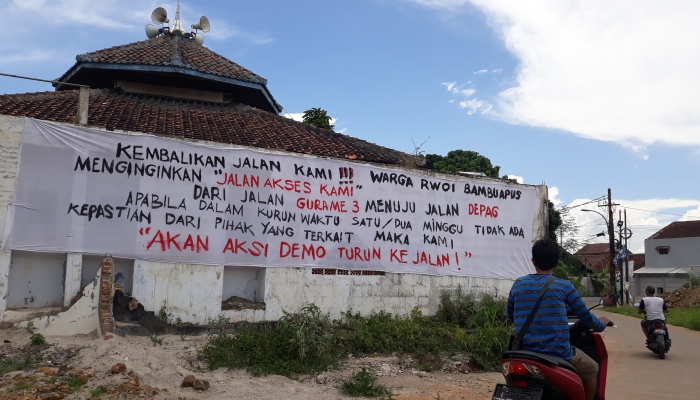 KEMBALIKAN JALAN KAMI !!! WARGA RW01 BAMBUAPUS
MENGINGINKAN "JALAN AKSES KAMI"
DARI JALAN GURAME 3 MENUJU JALAN DEPAG
APABILA DALAM KURUN WAKTU SATU/DUA MINGGU TIDAK ADA
KEPASTIAN DARI PIHAK YANG TERKAIT MAKA KAMI
"AKAN AKSI DEMO TURUN KE JALAN !"